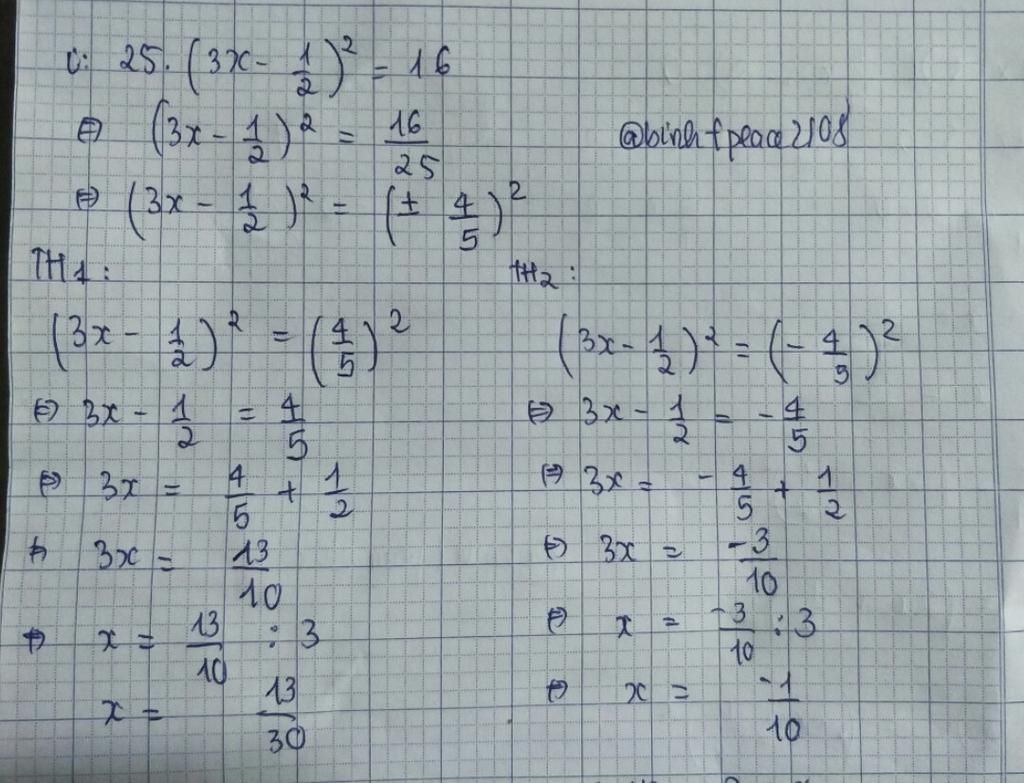 c: 25.(3x - 1/2)² = 16
⇔ (3x - 1/2)² = 16/25
@binhfpeace2108
⇔ (3x - 1/2)² = (± 4/5)²
TH1:
(3x - 1/2)² = (4/5)²
⇔ 3x - 1/2 = 4/5
⇔ 3x = 4/5 + 1/2
⇔ 3x = 13/10
⇔ x = 13/10 : 3
x = 13/30
TH2:
(3x - 1/2)² = (- 4/5)²
⇔ 3x - 1/2 = - 4/5
⇔ 3x = - 4/5 + 1/2
⇔ 3x = -3/10
⇔ x = -3/10 : 3
⇔ x = -1/10